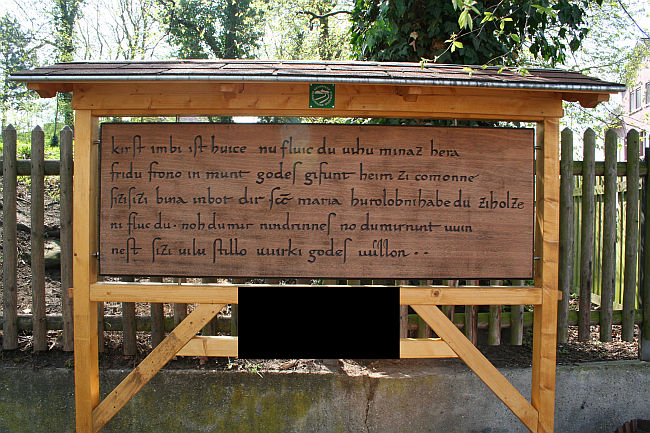 kirst imbi ist huice nu fluic du uihu minaz hera
fridu frono in munt godes gisunt heim zi comonne
sizi sizi bina inbot dir scē maria hurolobnihabe du ziholze
ni fluc du · noh du mir nindrinnes no du mir nunt uuin
nest sizi uilu stillo uuirki godes uuillon · ·